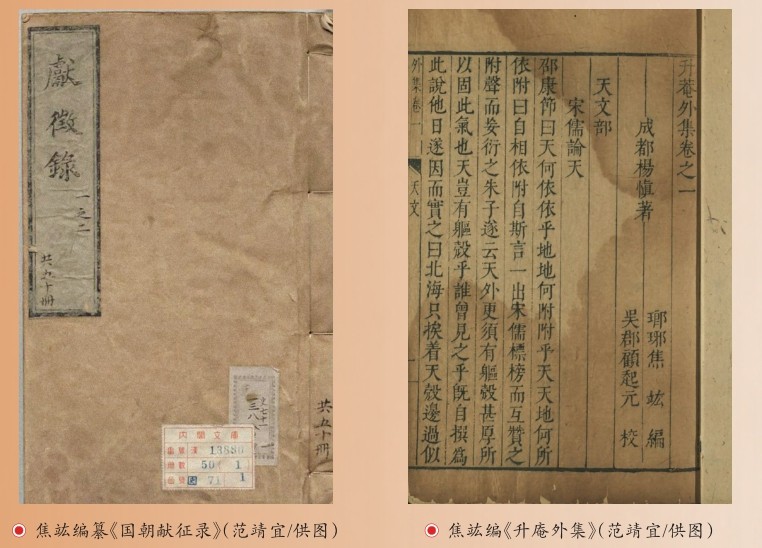 獻徵錄
一之二
共五十冊
共五十冊
内閣文庫
13880
50 1
71 1
焦竑编纂《国朝献征录》(范靖宜/供图)
升菴外集卷之一
成都楊慎著
瑯琊焦 竑 編
吳郡顧起元 校
天文部
宋儒論天
邵康節曰天何依依乎地地何附附乎天天地何所
依附曰自相依附自斯言一出宋儒標榜而互贊之
附聲而妄衍之朱子遂云天外更須有軀殼甚厚所
以固此氣也天豈有軀殼乎誰曾見之乎既自撰爲
此說他日遂因而實之曰北海只挨着天殼邊過似
外集卷一
天文
焦竑编《升庵外集》(范靖宜/供图)